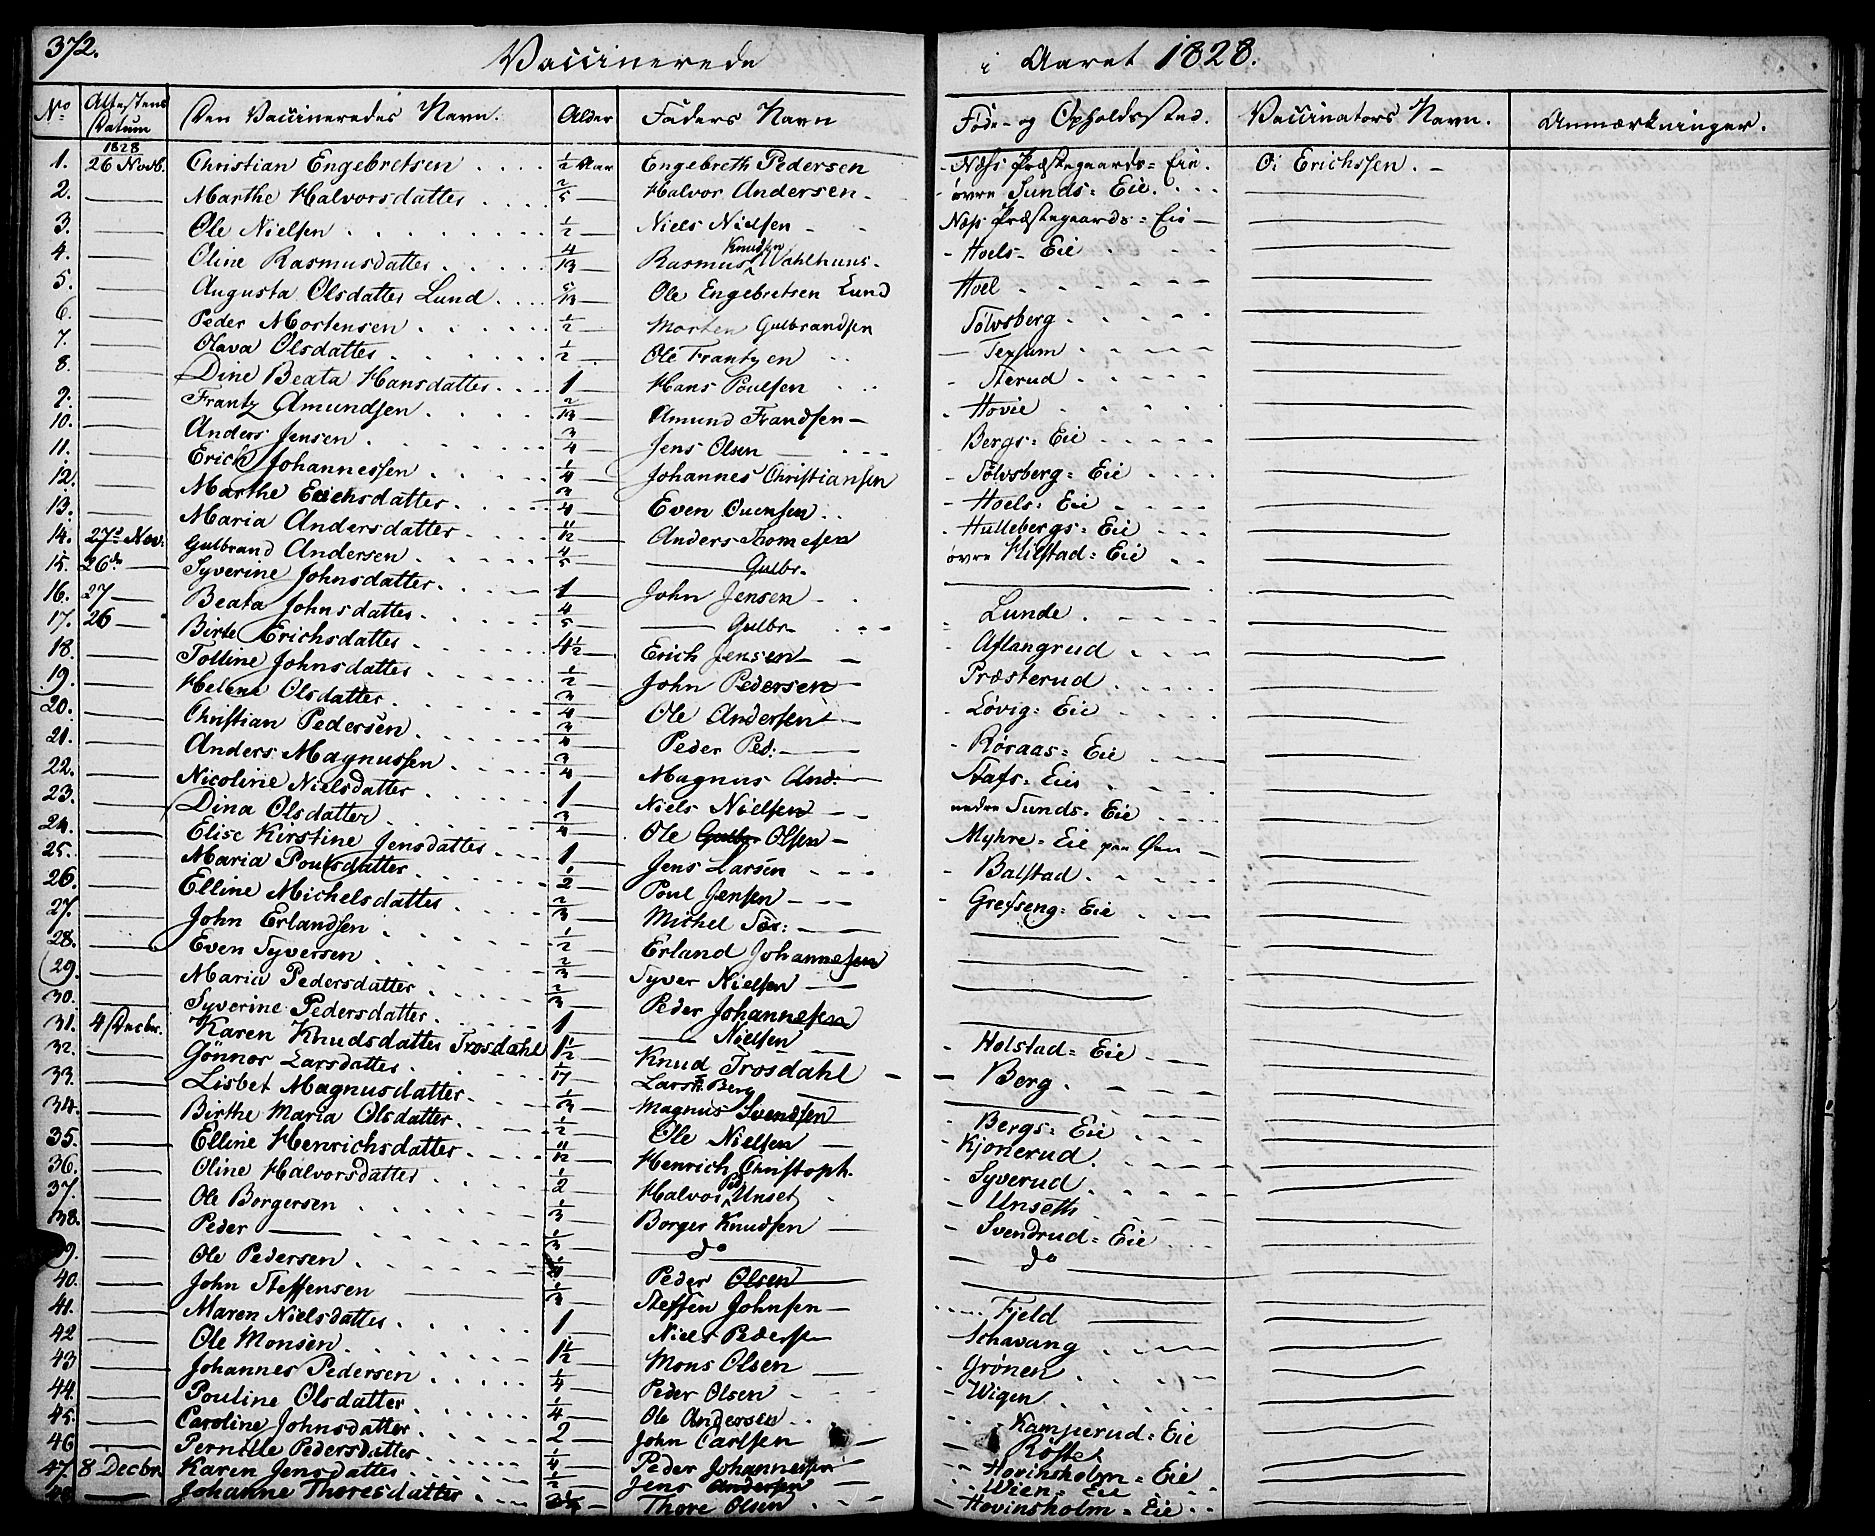 372. Vaccinerede i Aaret 1828.
No Attestens Datum Den Vaccineredes Navn. Alder Faders Navn Føde- og Opholdssted. Vaccinators Navn. Anmærkninger.
1828
1. 26 Novb. Christian Engebretsen 1/2 Aar Engebreth Pedersen Næss Præstegaards=Eie. Erichssen.
2. Marthe Halvorsdatter 2/5 Halvor Andersen øvre Sunds=Eie.
3. Ole Nielsen 1/2 Niels Nielsen Næss Præstegaards=Eie
4. Oline Rasmusdatter 4/13 Rasmus Knudsen Hoels=Eie
5. Augusta Olsdatter Lund 5/13 Ole Engebretsen Lund Hoel
6. Peder Mortensen 1/2 Morten Gulbrandsen Tølvsberg
7. Olava Olsdatter 1/2 Ole Frantzen
8. Dine Beata Hansdatter 1 Hans Poulsen Sterud
9. Frantz Amundsen 2/13 Amund Frandsen Hovie
10. Anders Jensen 3/4 Jens Olsen Bergs=Eie
11. Erich Johannessen 1/4 Johannes Christiansen Tølvsberg=Eie
12. Marthe Evensdatter 3/4 Even Evensen Hoels=Eie
13. Maria Andersdatter 11/12 Anders Thomesen Hullebergs=Eie
14. 27de Nov: Gulbrand Andersen 4/5 Gulbr. øvre Hilstad=Eie
15. 26de Syverine Johnsdatter 1 John Jensen
16. 27 Beata Johnsdatter 4/5 Gulbr. Lunde
17. 26 Birte Erichsdatter 4 1/2 Erich Jensen Aflangrud
18. Tolline Johnsdatter 1/2 John Pedersen Præsterud
19. Helene Olsdatter 3/4 Ole Andersen Løvig=Eie
20. Christian Pedersen 3/4 Peder Ped: Røraas=Eie
21. Anders Magnussen 3/4 Magnus And: Stafs=Eie
22. Nicoline Nielsdatter 1 Niels Nielsen nedre Sunds=Eie
23. Dina Olsdatter 3/4 Ole Gulbr Olsen Myhre=Eie paa Øen
24. Elise Kirstine Jensdatter 1 Jens Larsen Balstad
25. Maria Poulsdatter 1/2 Poul Jensen Grefseng=Eie
26. Elline Michelsdatter 2/3 Michel
27. John Erlandsen 1/2 Erland Johannesen
28. Even Syversen 2/3 Syver Nielsen
29. Maria Pedersdatter 2/3 Peder Johannesen
30. Syverine Pedersdatter 1 Nielsen Holstad=Eie
31. 4 Decbr. Karen Knudsdatter Trosdahl 1 1/2 Knud Trosdahl Berg
32. Gønnor Larsdatter Lars Berg
33. Lisbet Magnusdatter 1/3 Magnus Svendsen Bergs=Eie
34. Birthe Maria Olsdatter 1/2 Ole Nielsen Kjonerud
35. Elline Henrichsdatter 11/12 Henrich Christoph. Syverud
36. Oline Halvorsdatter 1/2 Halvor Unset Unseth
37. Ole Borgersen 1/3 Borger Knudsen Svendrud=Eie
38. Peder 1/3 do do
39. Ole Pedersen Peder Olsen
40. John Steffensen 1/3 Steffen Johnsen Fjeld
41. Maren Nielsdatter 1 Niels Pedersen Schavang
42 Ole Monsen 1 1/2 Mons Olsen Grønen
43 Johannes Pedersen 1/4 Peder Olsen Wigen
44. Pouline Olsdatter 1/4 Ole Andersen Kamperud=Eie
45. Caroline Johnsdatter 2 John Carlsen
46 Pernille Pedersdatter 1/4 Peder Johannesen Hovinsholm=Eie
47. 8 Decbr. Karen Jensdatter 1/2 Jens Andersen Wien=Eie
48 Johanne Thoresdatter Thore Olsen Hovinsholm=Eie